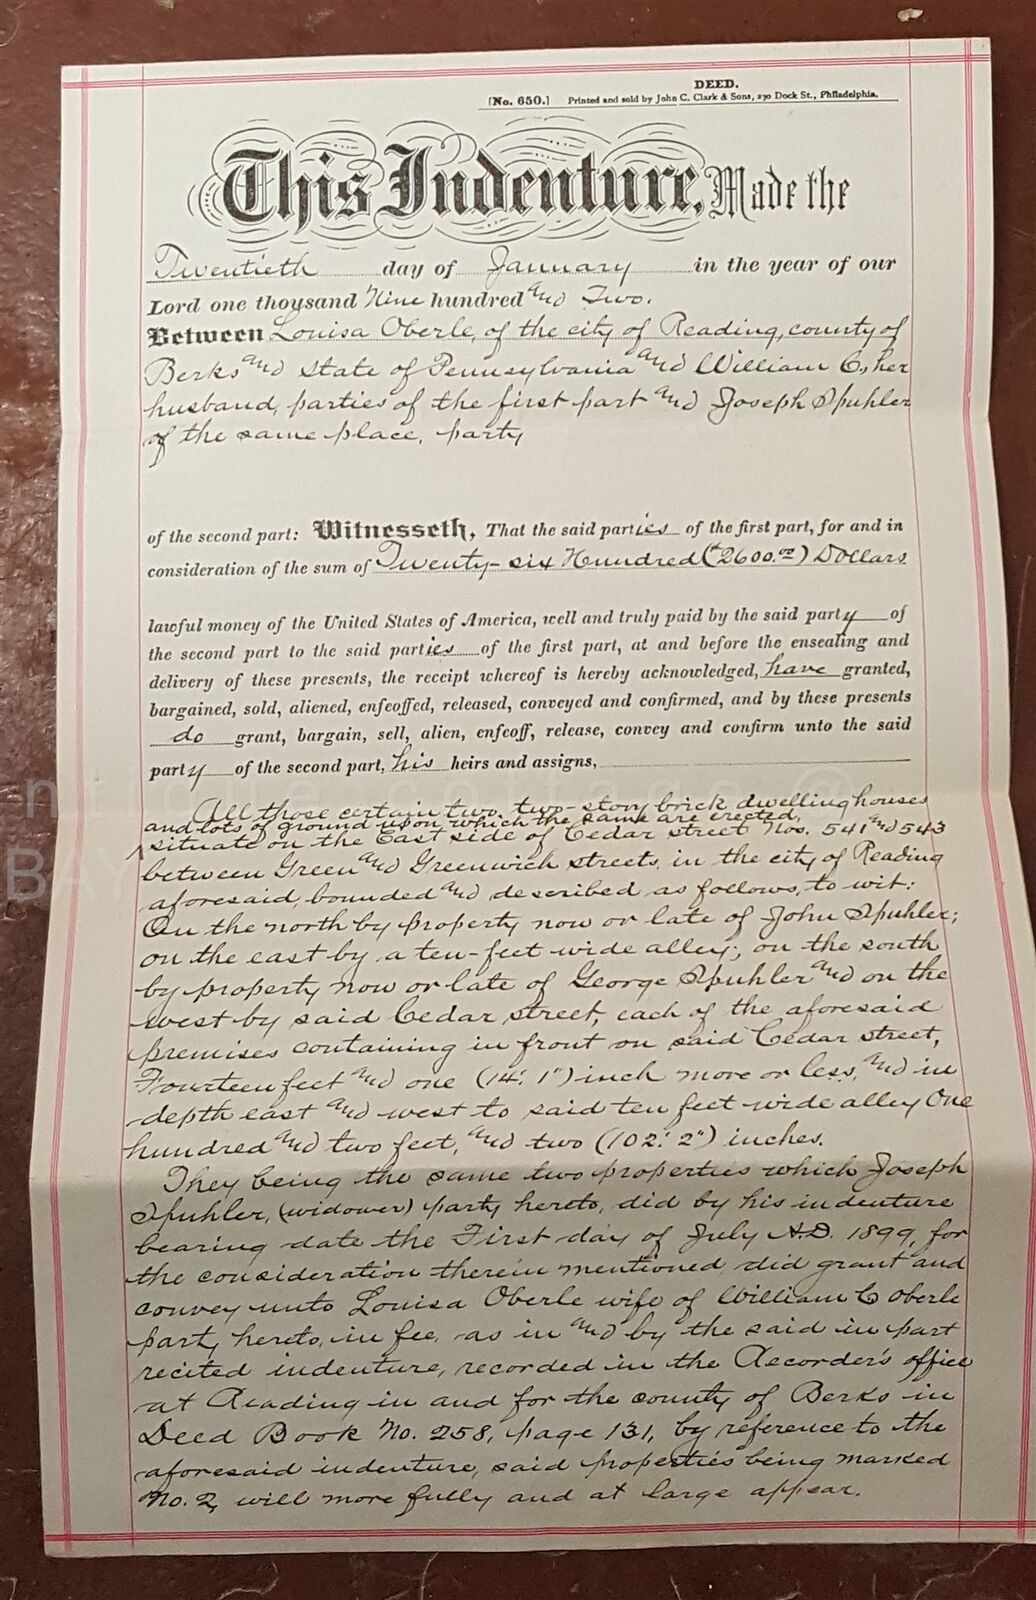 DEED.
[No. 650.] Printed and sold by John C. Clark & Sons, 230 Dock St., Philadelphia.
This Indenture, Made the
Twentieth day of January in the year of our
Lord one thousand Nine hundred and Two.
Between Louisa Oberle, of the city of Reading, county of
Berks and state of Pennsylvania and William C, her
husband, parties of the first part and Joseph Spuhler
of the same place, party
of the second part: Witnesseth, That the said parties of the first part, for and in
consideration of the sum of Twenty-six Hundred ($2600.00) Dollars
lawful money of the United States of America, well and truly paid by the said party of
the second part to the said parties of the first part, at and before the ensealing and
delivery of these presents, the receipt whereof is hereby acknowledged, have granted,
bargained, sold, aliened, enfeoffed, released, conveyed and confirmed, and by these presents
do grant, bargain, sell, alien, enfeoff, release, convey and confirm unto the said
party of the second part, his heirs and assigns,
All those certain two, two-story brick dwelling houses
and lots of ground upon which the same are erected,
situate on the East side of Cedar street Nos. 541 and 543
between Green and Greenwich streets, in the city of Reading
aforesaid, bounded and described as follows, to wit:
On the north by property now or late of John Spuhler;
on the east by a ten-feet wide alley; on the south
by property now or late of George Spuhler and on the
west by said Cedar street, each of the aforesaid
premises containing in front on said Cedar street,
Fourteen feet and one (14'. 1") inch more or less, and in
depth east and west to said ten feet wide alley One
hundred and two feet, and two (102'. 2") inches.
They being the same two properties which Joseph
Spuhler, (widower) party hereto, did by his indenture
bearing date the First day of July A.D. 1899, for
the consideration therein mentioned did grant and
convey unto Louisa Oberle wife of William C Oberle
party hereto, in fee, as in and by the said in part
recited indenture, recorded in the Recorder's office
at Reading in and for the county of Berks in
Deed Book No. 258, page 131, by reference to the
aforesaid indenture, said properties being marked
No. 2, will more fully and at large appear.